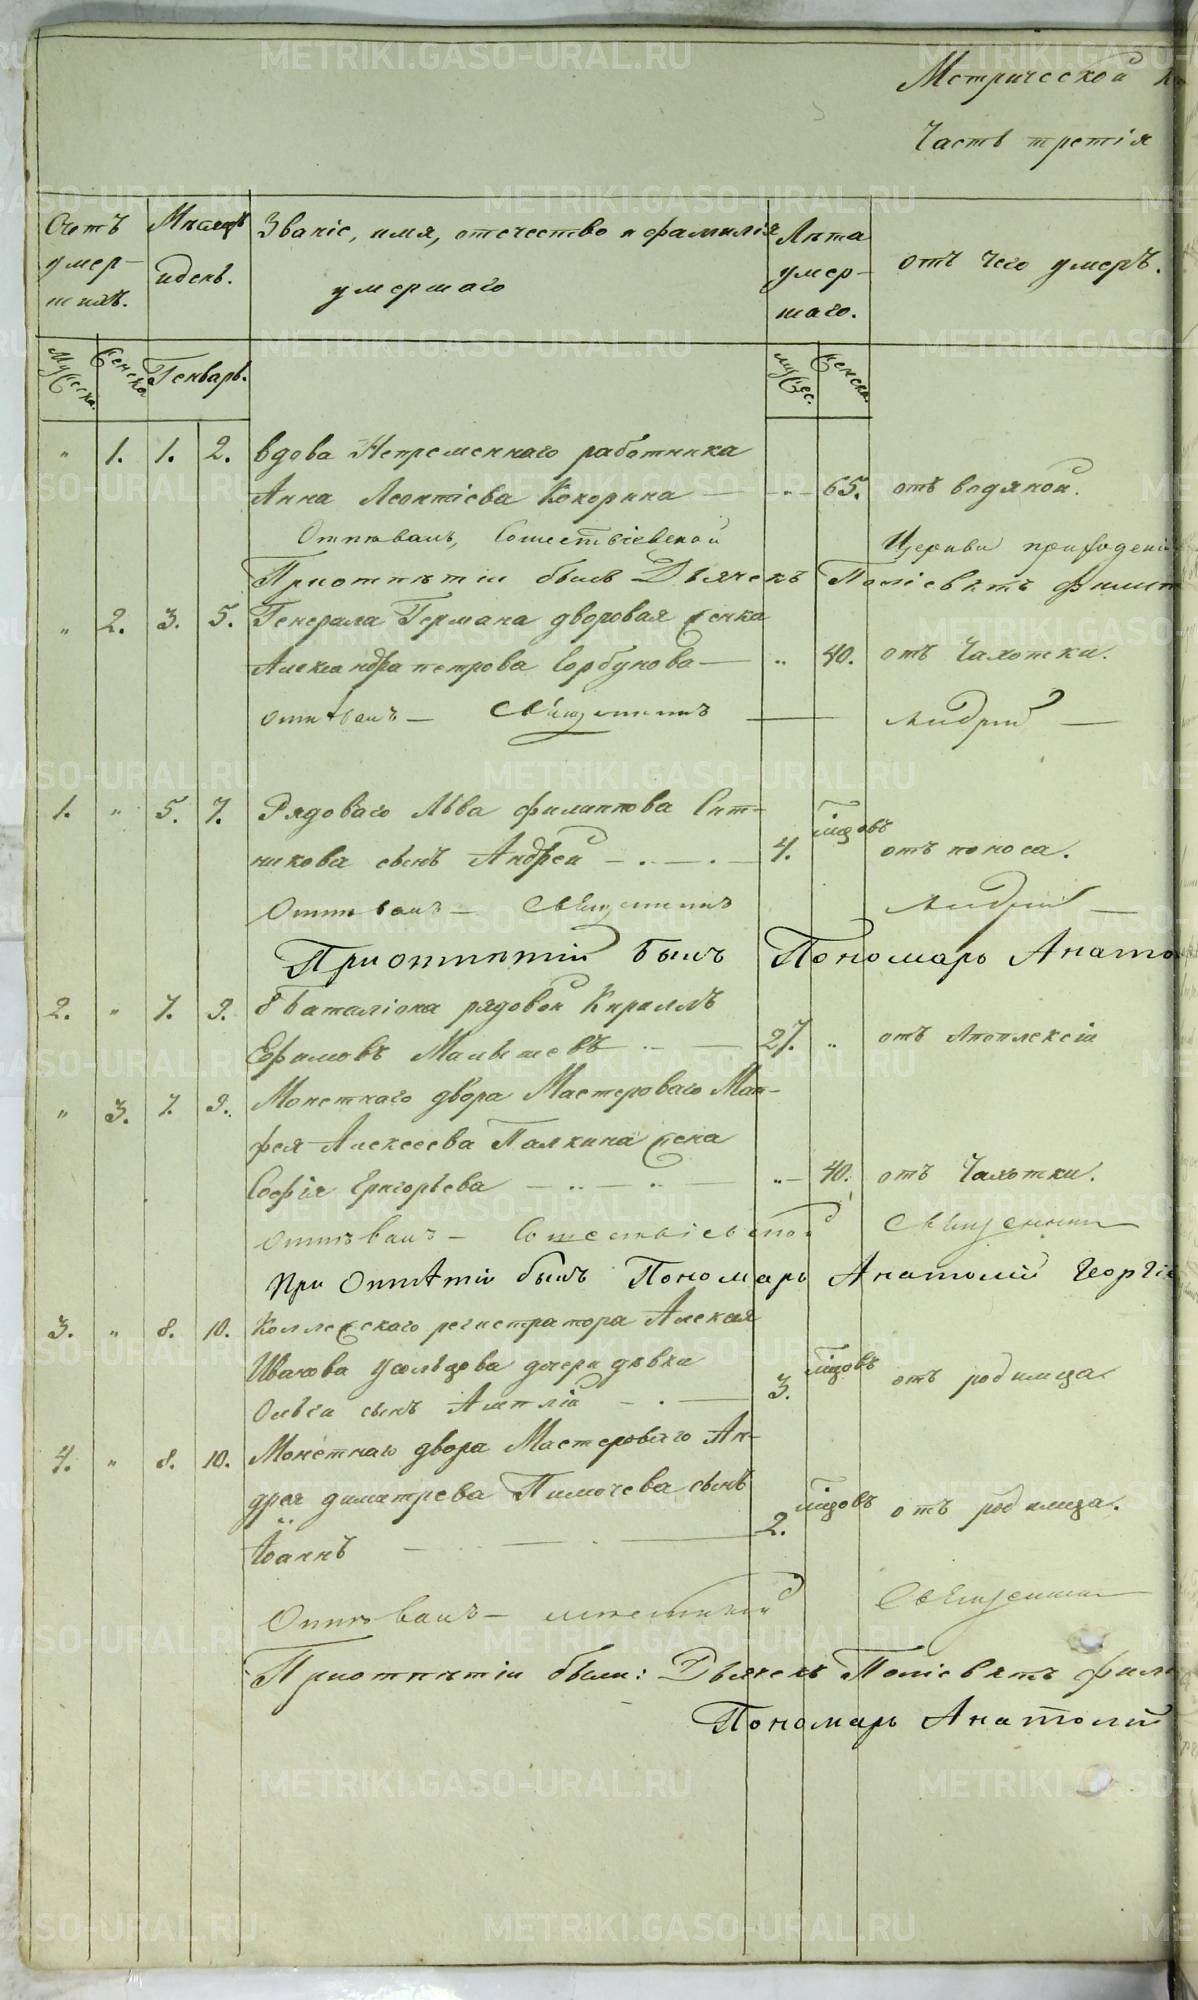 Метрической
Часть третія
Счетъ умер-шихъ.
Мѣсяцъ и день.
Званіе, имя, отечество и фамилія умершаго
Лѣта умер-шаго.
отъ чего умеръ.
Мужеска. Женска.
Генварь.
мужес. женска.
" 1. 1. 2. вдова Непременнаго работника
Анна Леонтіева Кокорина — " — 65. отъ водяной.
Отпѣвалъ, Сошествіевской Церкви
Приотпѣтіи былъ Дьячекъ Поліевктъ
" 2. 3. 5. Генерала Германа дворовая женка
Александра петрова Горбунова — " 40. отъ Чахотки.
отпѣвалъ — Священникъ — Андрей —
1. " 5. 7. Рядоваго Льва филиппова Сит-
никова сынъ Андрей — 4. мцовъ отъ поноса.
Отпѣвалъ — Священникъ Андрей —
Приотпѣтіи былъ Пономарь Анато
2. " 7. 9. 8 баталіона рядовой Кириллъ
Ефимовъ Малышевъ — 27. " отъ Апоплексіи
" 3. 7. 9. Монетнаго двора Мастероваго Мат-
фея Алексеева Палкина жена
Софія Григорьева — " — 40. отъ Чахотки.
отпѣвалъ — Сошествіевской Священникъ
При Отпѣтіи былъ Пономарь Анатолій Георгіе
3. " 8. 10. Коллежскаго регистратора Алексея
Иванова Усольцова дочери дѣвки
Ольги сынъ — 3. мцовъ отъ родимца.
4. " 8. 10. Монетнаго двора Мастероваго Ан-
дрея димитрева Пимочева сынъ
Іоаннъ — 2. мцовъ отъ родимца.
Отпѣвалъ — Священникъ
Приотпѣтіи были: Дьячекъ Поліевктъ фили
Пономарь Анатолій
METRIKI.GASO-URAL.RU